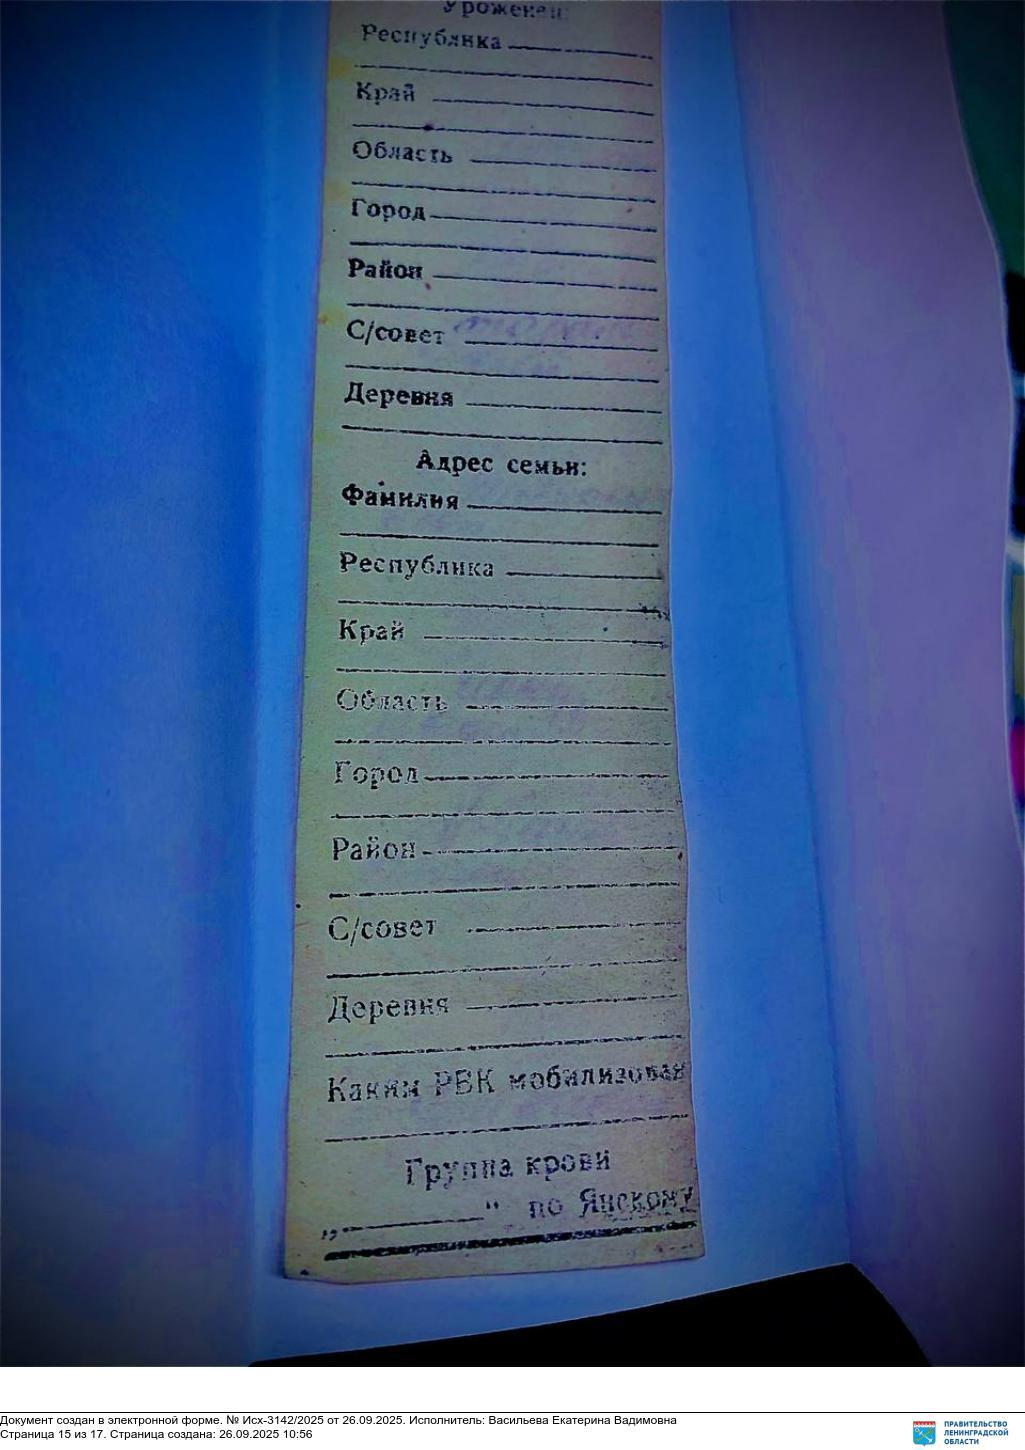 Уроженец:
Республика
Край
Область
Город
Район
С/совет
Деревня
Адрес семьи:
Фамилия
Республика
Край
Область
Город
Район
С/совет
Деревня
Каким РВК мобилизован
Группа крови
„ “ по Янскому
Документ создан в электронной форме. № Исх-3142/2025 от 26.09.2025. Исполнитель: Васильева Екатерина Вадимовна
Страница 15 из 17. Страница создана: 26.09.2025 10:56
ПРАВИТЕЛЬСТВО
ЛЕНИНГРАДСКОЙ
ОБЛАСТИ